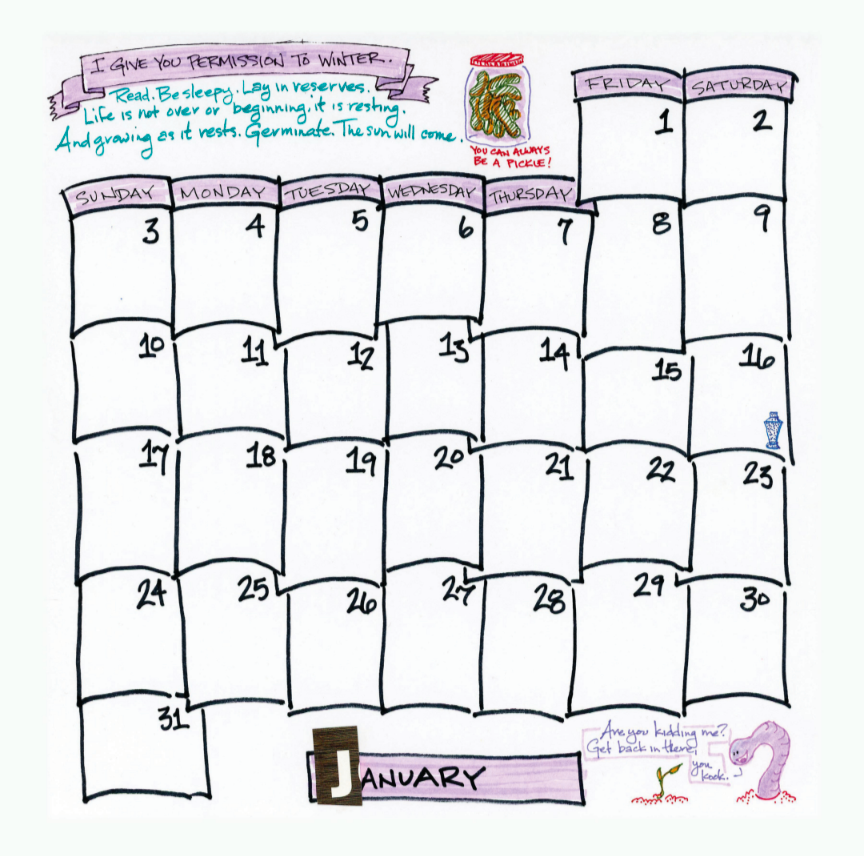 I GIVE YOU PERMISSION TO WINTER..
Read. Be sleepy. Lay in reserves.
Life is not over or beginning: it is resting.
And growing as it rests. Germinate. The sun will come.
YOU CAN ALWAYS
BE A PICKLE!
FRIDAY SATURDAY
1 2
SUNDAY MONDAY TUESDAY WEDNESDAY THURSDAY
3 4 5 6 7 8 9
10 11 12 13 14 15 16
17 18 19 20 21 22 23
24 25 26 27 28 29 30
31
JANUARY
Are you kidding me?
Get back in there,
you
kook.